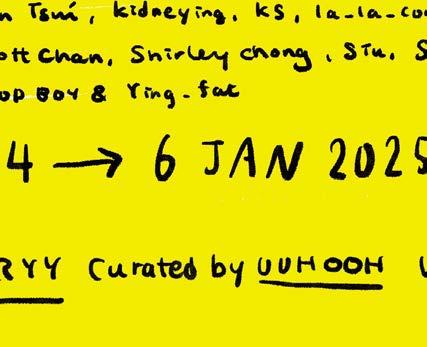 n Tsui, kidneying, KS, la-la-co
ott Chan, Shirley Chong, Siu, S
OP BOY & Ying-fat
4 → 6 JAN 2025
RYY Curated by UUHOOH